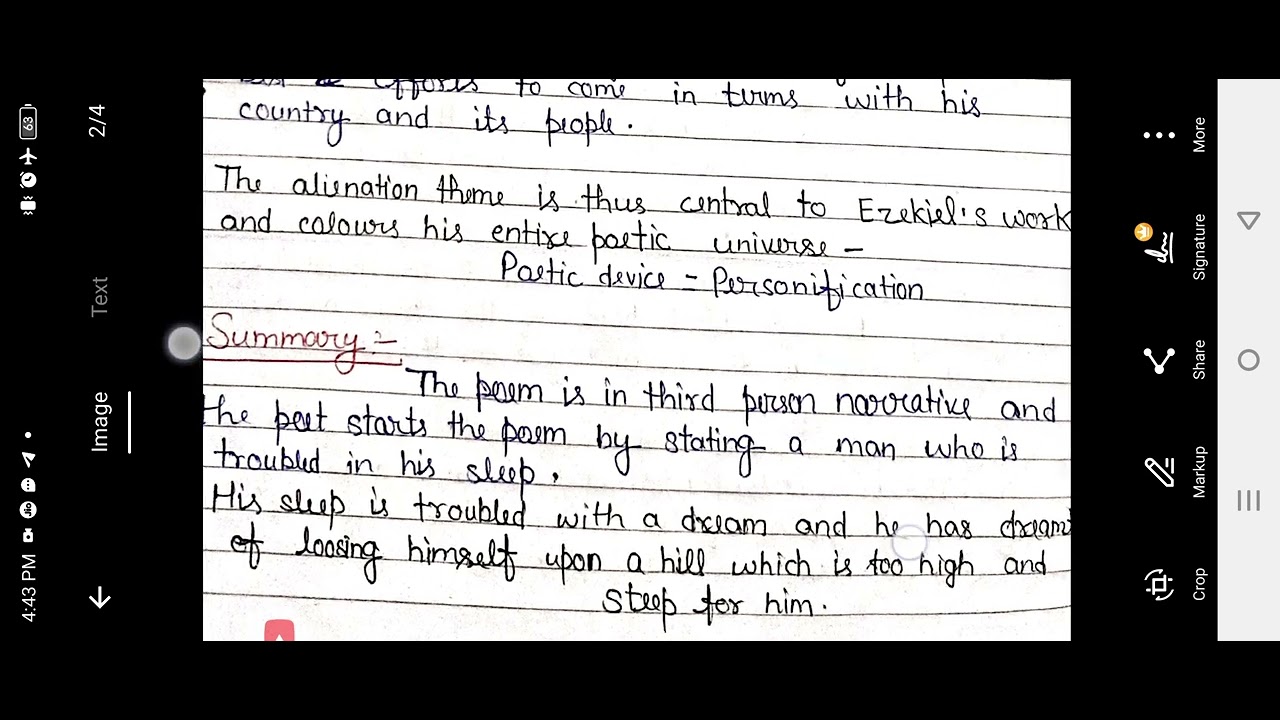 efforts to come in turms with his
country and its people.
The alienation theme is thus central to Ezekiel's work
and colours his entire poetic universe -
Poetic device = Personification
Summary :-
The poem is in third person narrative and
the poet starts the poem by stating a man who is
troubled in his sleep.
His sleep is troubled with a dream and he has dream
of loosing himself upon a hill which is too high and
steep for him.
4:43 PM
63
2/4
Text
Image
More
Signature
Share
Markup
Crop